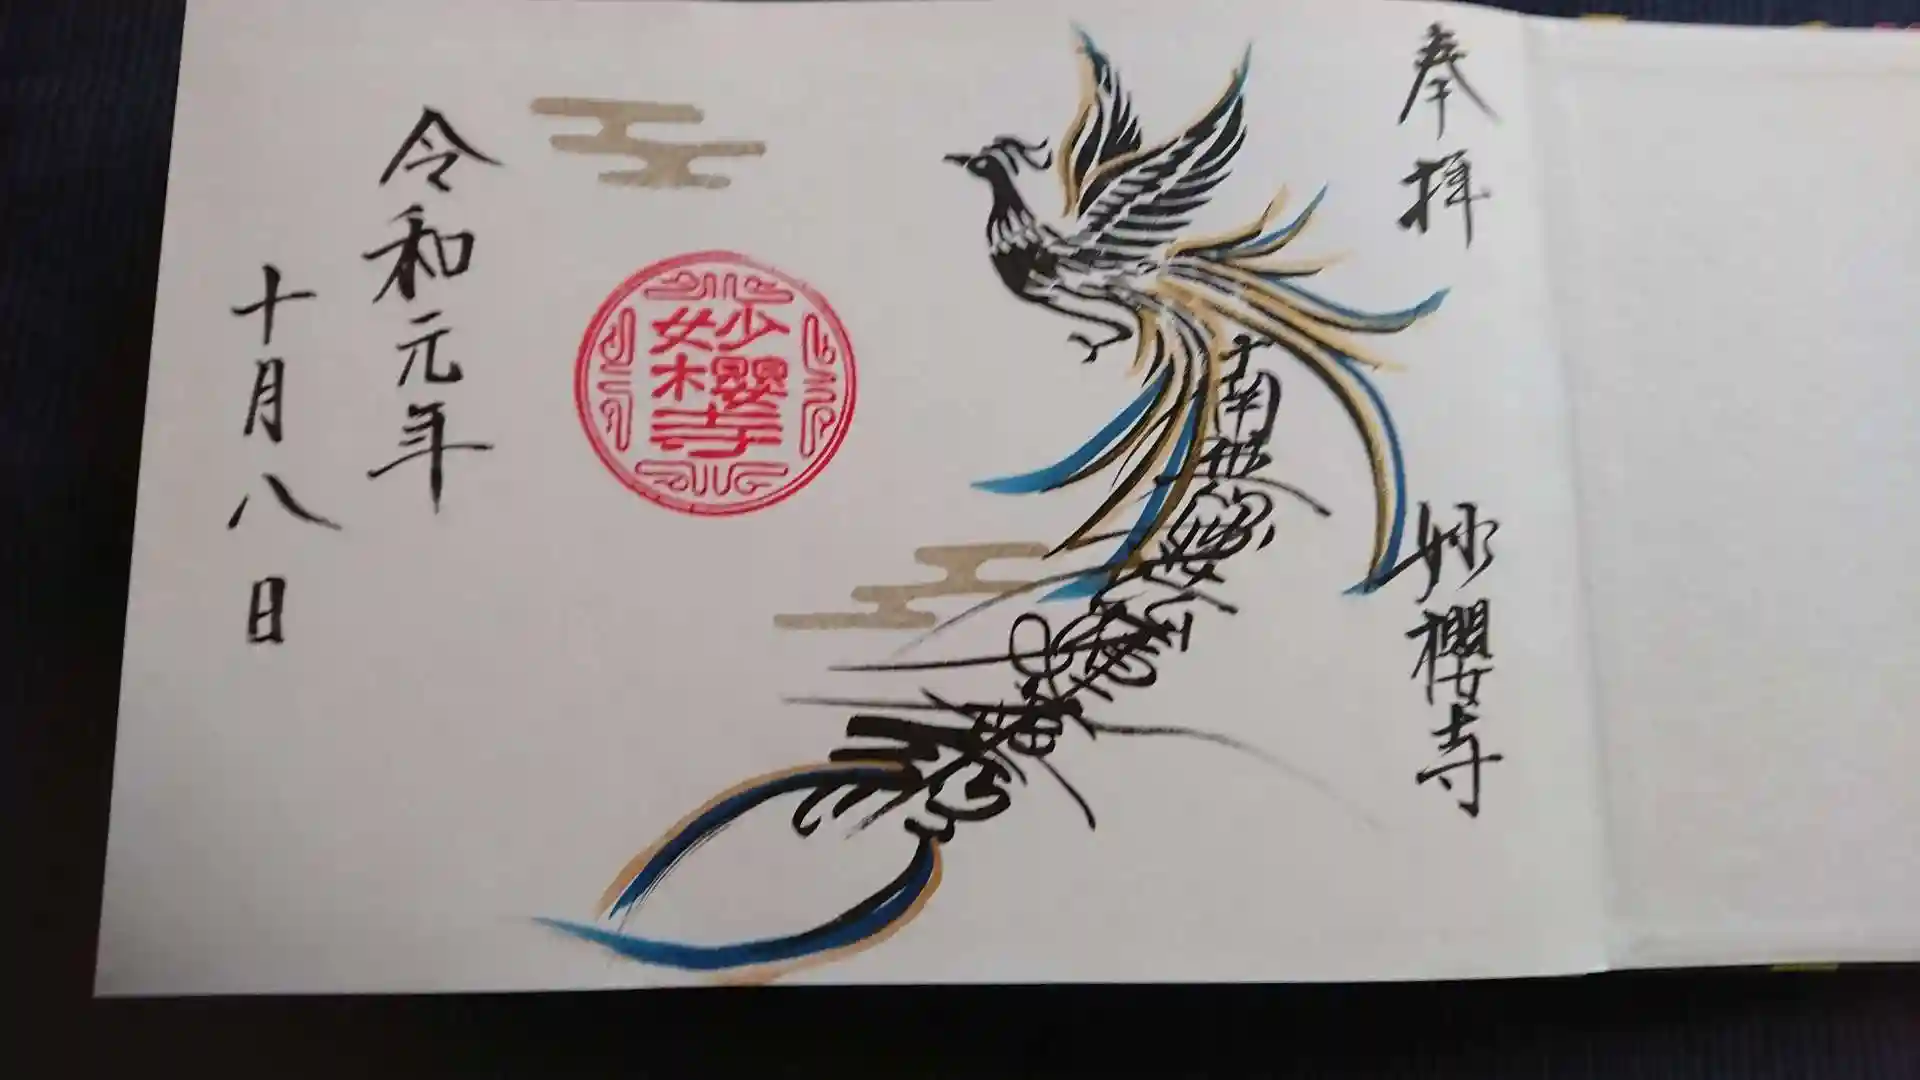 奉拝
妙櫻寺
南無妙法蓮華経
妙櫻寺
令和元年
十月八日